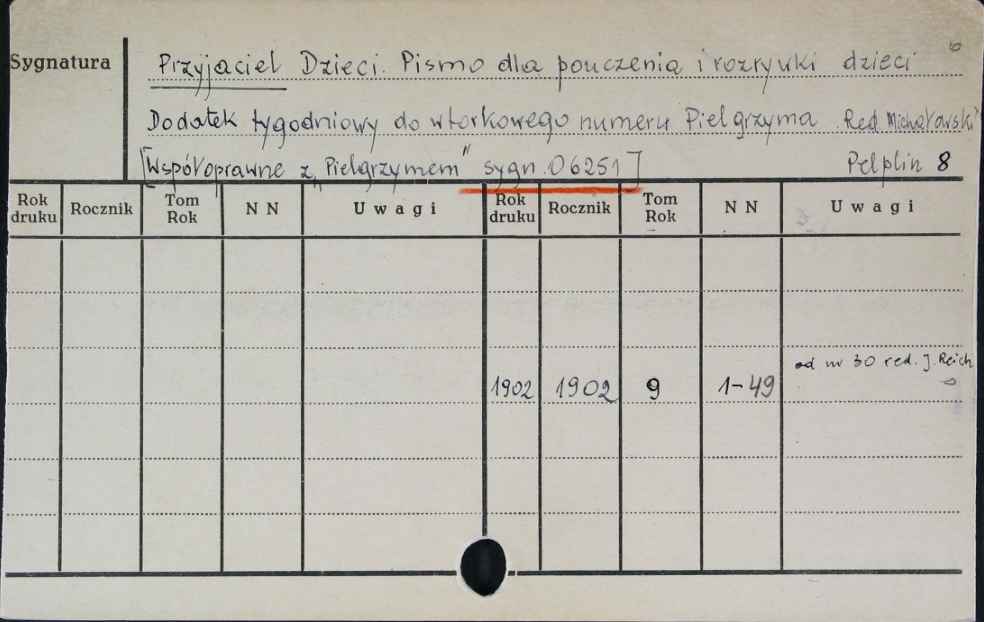 Sygnatura
Przyjaciel Dzieci. Pismo dla pouczenia i rozrywki dzieci
Dodatek tygodniowy do wtorkowego numeru Pielgrzyma. Red Michałowski
[Współoprawne z „Pielgrzymem" sygn. 06251] Pelplin 8
Rok druku Rocznik Tom Rok N N Uwagi Rok druku Rocznik Tom Rok N N Uwagi
od nr 30 red. J. Reich
1902 1902 9 1-49